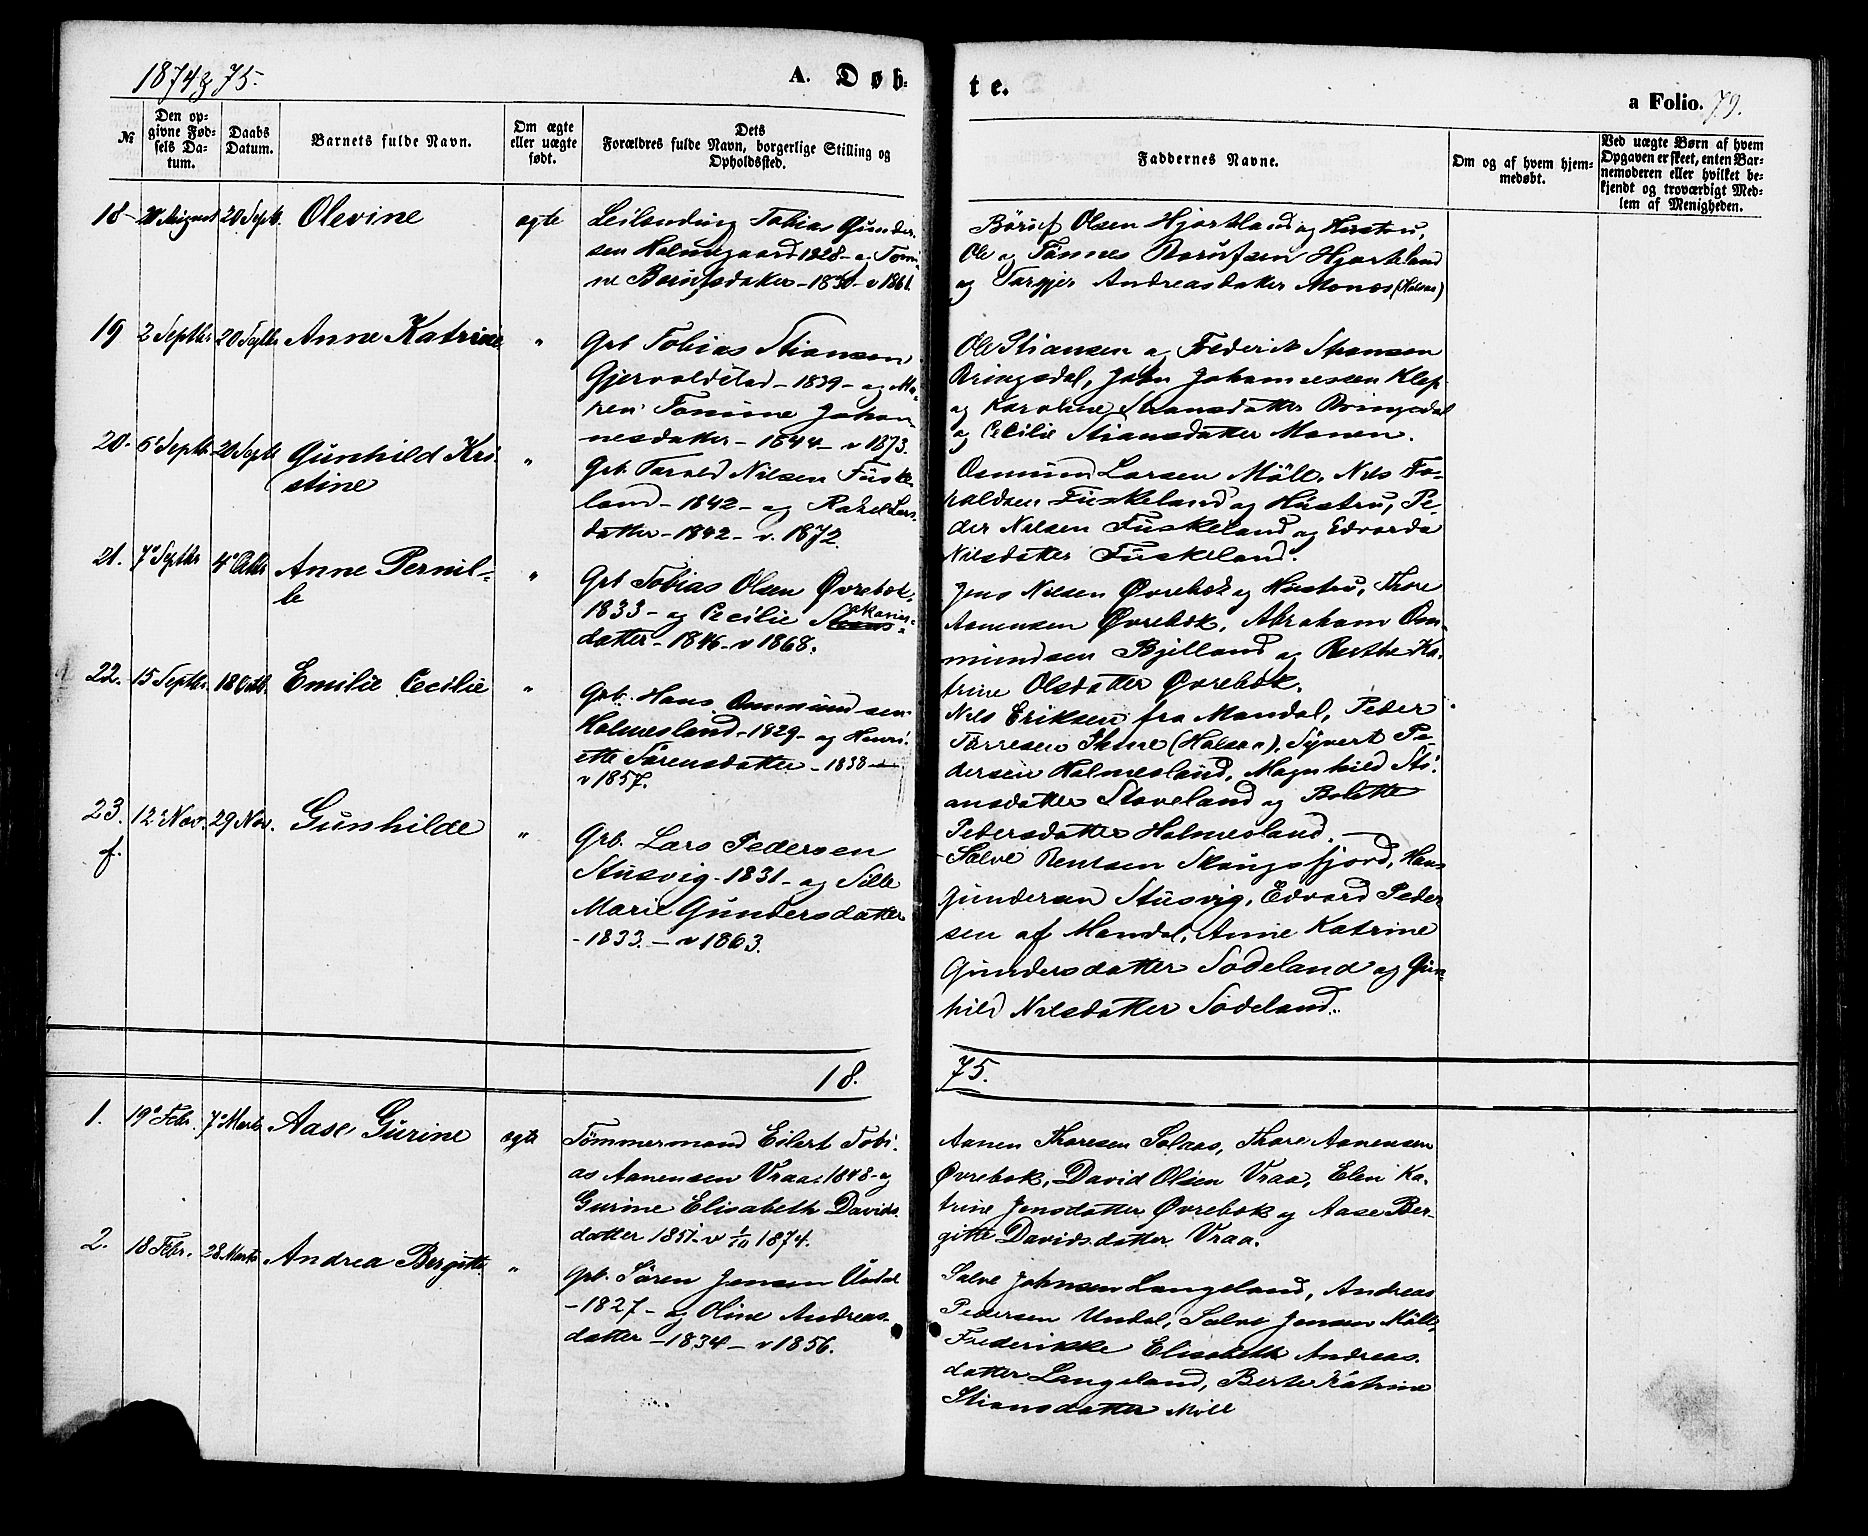 1874 & 75.
A. Døb-
te.
a Folio. 79.
№
Den op-
givne Fød-
sels Da-
tum.
Daabs
Datum.
Barnets fulde Navn.
Om ægte
eller uægte
født.
Dets
Forældres fulde Navn, borgerlige Stilling og
Opholdssted.
Faddernes Navne.
Om og af hvem hjem-
medøbt.
Ved uægte Børn af hvem
Opgaven er skeet, enten Bar-
nemoderen eller hvilket be-
kjendt og troværdigt Med-
lem af Menigheden.
18 August 20 Septr. Olevine ægte
Leilending Tobias Gunder-
sen Holmegaard 1828 - og Tomi-
ne Berufsdatter - 1830 - v 1861.
Børuf Olsen Hjortland og Hustru,
Ole og Tønnes Børufsen Hjorteland
og Torgjer Andreasdatter Monos (Halsaa)
19 2 Septbr 20 Septbr Anne Katrine "
Grb Tobias Stiansen
Gjervoldstad - 1839 - og Ma-
ren Tomine Johan-
nesdatter - 1844 - v 1873.
Ole Stiansen og Frederik Stiansen
Bringsdal, John Johannessen Klep
og Karoline Stiansdatter Bringsdal
og Cecilie Stiansdatter Monen.
20. 6 Septbr. 20 Septb Gunhild Kri-
stine "
Grb. Tarald Nilsen Fuske-
land - 1842 - og Rakel Lars-
datter - 1842 - v. 1872.
Osmund Larsen Møll, Nils Ta-
raldsen Fuskeland og Hustru, Pe-
der Nilsen Fuskeland og Edvarda
Nilsdatter Fuskeland.
21. 7 Septbr 4 Octbr Anne Pernil-
le "
Grb Tobias Olsen Øvrebøk.
1833 - og Cecilie
datter - 1846 - v 1868.
Jens Nilsen Øvrebøk og Hustru, Thore
Aanensen Øvrebøk, Abraham Os-
mundsen Bjelland og Berthe Ka-
trine Olsdatter Øvrebøk.
22. 15 Septbr. 18 Octb. Emilie Cecilie "
Grb. Hans Osmundsen
Holmesland - 1829 - og Henri-
ette Sørensdatter - 1838 -
v 1857.
Nils Eriksen fra Mandal, Peder
Tørresen Ihme (Halsaa), Syvert Pe-
dersen Holmesland, Magnhild Sti-
ansdatter Stoveland og Bolette
Pedersdatter Holmesland.
23. 12 Nov. 29 Nov. Gunhilde "
f.
Grb. Lars Pedersen
Stusvig - 1831 - og Sille
Marie Gundersdatter
- 1833 - v 1863.
Salve Bentsen Skougsfjord, Hans
Gundersen Stusvig, Edvard Peder-
sen af Mandal, Anne Katrine
Gundersdatter Sodeland og Gun-
hild Nilsdatter Sodeland.
18.
75.
1. 19 Febr. 7 Marts Aase Gurine ægte
Tømmermand Eilert Tobi-
as Aanensen Vraa. 1848 - og
Gurine Elisabeth Davids-
datter 1851 - v 1/10 1874.
Aanen Thoresen Solaas, Thore Aanensen
Øvrebøk, David Olsen Vraa, Elen Ka-
trine Jensdatter Øvrebøk og Aase Ber-
gitte Davidsdatter Vraa.
2. 18 Febr. 28 Marts Andrea Bergitte "
Grb. Søren Jensen Undal
- 1827 - og Oline Andreas-
datter - 1834 - v 1856.
Salve Johnsen Langeland, Andreas
Pedersen Undal, Salve Jensen Møll,
Frederikke Elisabeth Andreas-
datter Langeland, Berte Katrine
Stiansdatter Møll